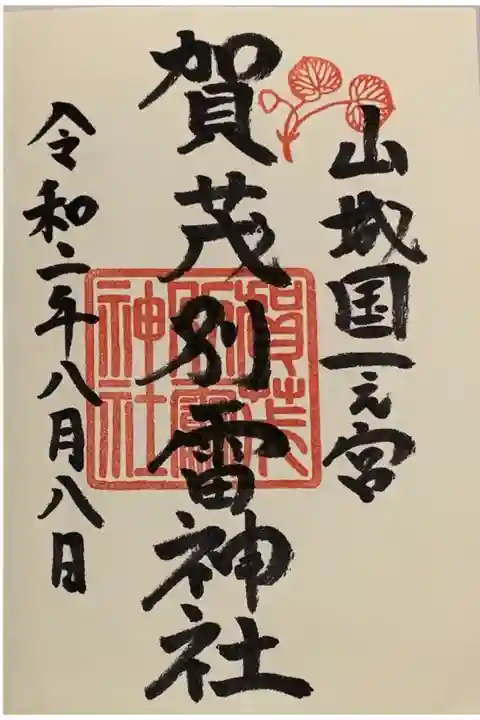 山城国一之宮
賀茂別雷神社
賀茂
別雷
神社
令和二年八月八日